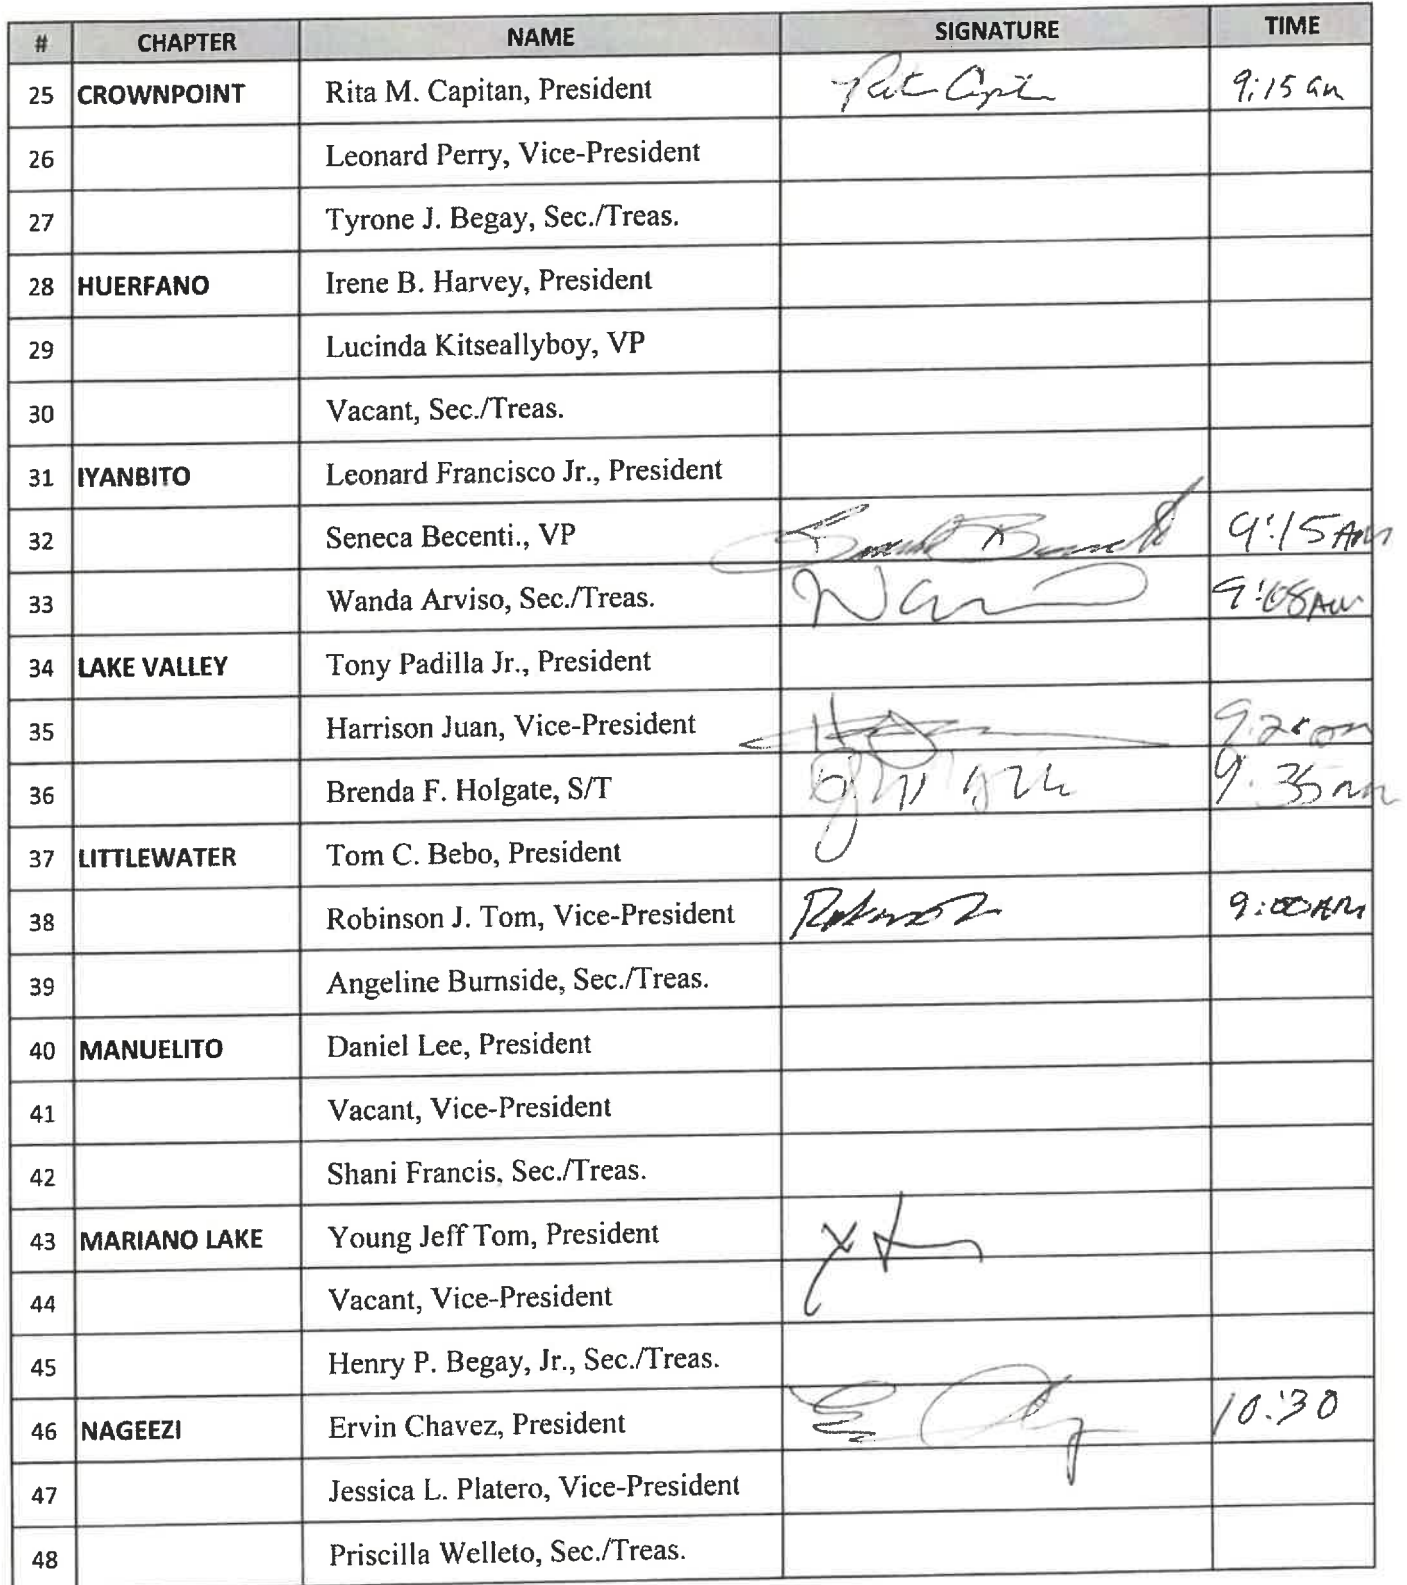 # CHAPTER NAME SIGNATURE TIME
25 CROWNPOINT Rita M. Capitan, President Rita Capitan 9:15 am
26 Leonard Perry, Vice-President
27 Tyrone J. Begay, Sec./Treas.
28 HUERFANO Irene B. Harvey, President
29 Lucinda Kitseallyboy, VP
30 Vacant, Sec./Treas.
31 IYANBITO Leonard Francisco Jr., President
32 Seneca Becenti., VP 9:15 AM
33 Wanda Arviso, Sec./Treas. 9:08 AM
34 LAKE VALLEY Tony Padilla Jr., President
35 Harrison Juan, Vice-President
36 Brenda F. Holgate, S/T 9:35 am
37 LITTLEWATER Tom C. Bebo, President
38 Robinson J. Tom, Vice-President 9:00 AM
39 Angeline Burnside, Sec./Treas.
40 MANUELITO Daniel Lee, President
41 Vacant, Vice-President
42 Shani Francis, Sec./Treas.
43 MARIANO LAKE Young Jeff Tom, President
44 Vacant, Vice-President
45 Henry P. Begay, Jr., Sec./Treas.
46 NAGEEZI Ervin Chavez, President 10:30
47 Jessica L. Platero, Vice-President
48 Priscilla Welleto, Sec./Treas.